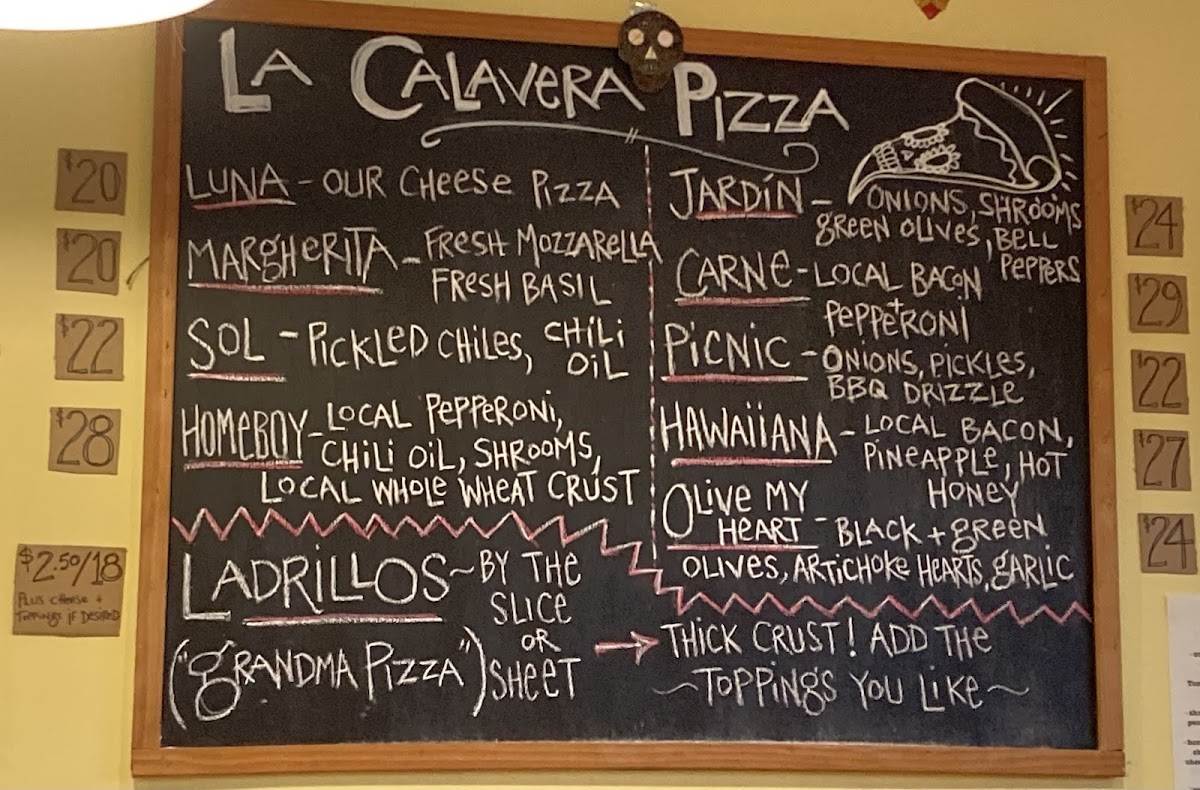 LA CALAVERA PIZZA
$20
LUNA - OUR CHEESE PIZZA
$20
MARGHERITA - FRESH MOZZARELLA
FRESH BASIL
$22
SOL - PICKLED CHILES, CHILI
OIL
$28
HOMEBOY - LOCAL PEPPERONI,
CHILI OIL, SHROOMS,
LOCAL WHOLE WHEAT CRUST
JARDÍN - ONIONS, SHROOMS
GREEN OLIVES, BELL
PEPPERS
$24
CARNE - LOCAL BACON
+
PEPPERONI
$29
PICNIC - ONIONS, PICKLES,
BBQ DRIZZLE
$22
HAWAIIANA - LOCAL BACON,
PINEAPPLE, HOT
HONEY
$27
OLIVE MY
HEART - BLACK + GREEN
OLIVES, ARTICHOKE HEARTS, GARLIC
$24
$2.50/18
PLUS CHEESE +
TOPPINGS IF DESIRED
LADRILLOS ~ BY THE
SLICE
OR
("GRANDMA PIZZA") SHEET
→ THICK CRUST! ADD THE
~TOPPINGS YOU LIKE~